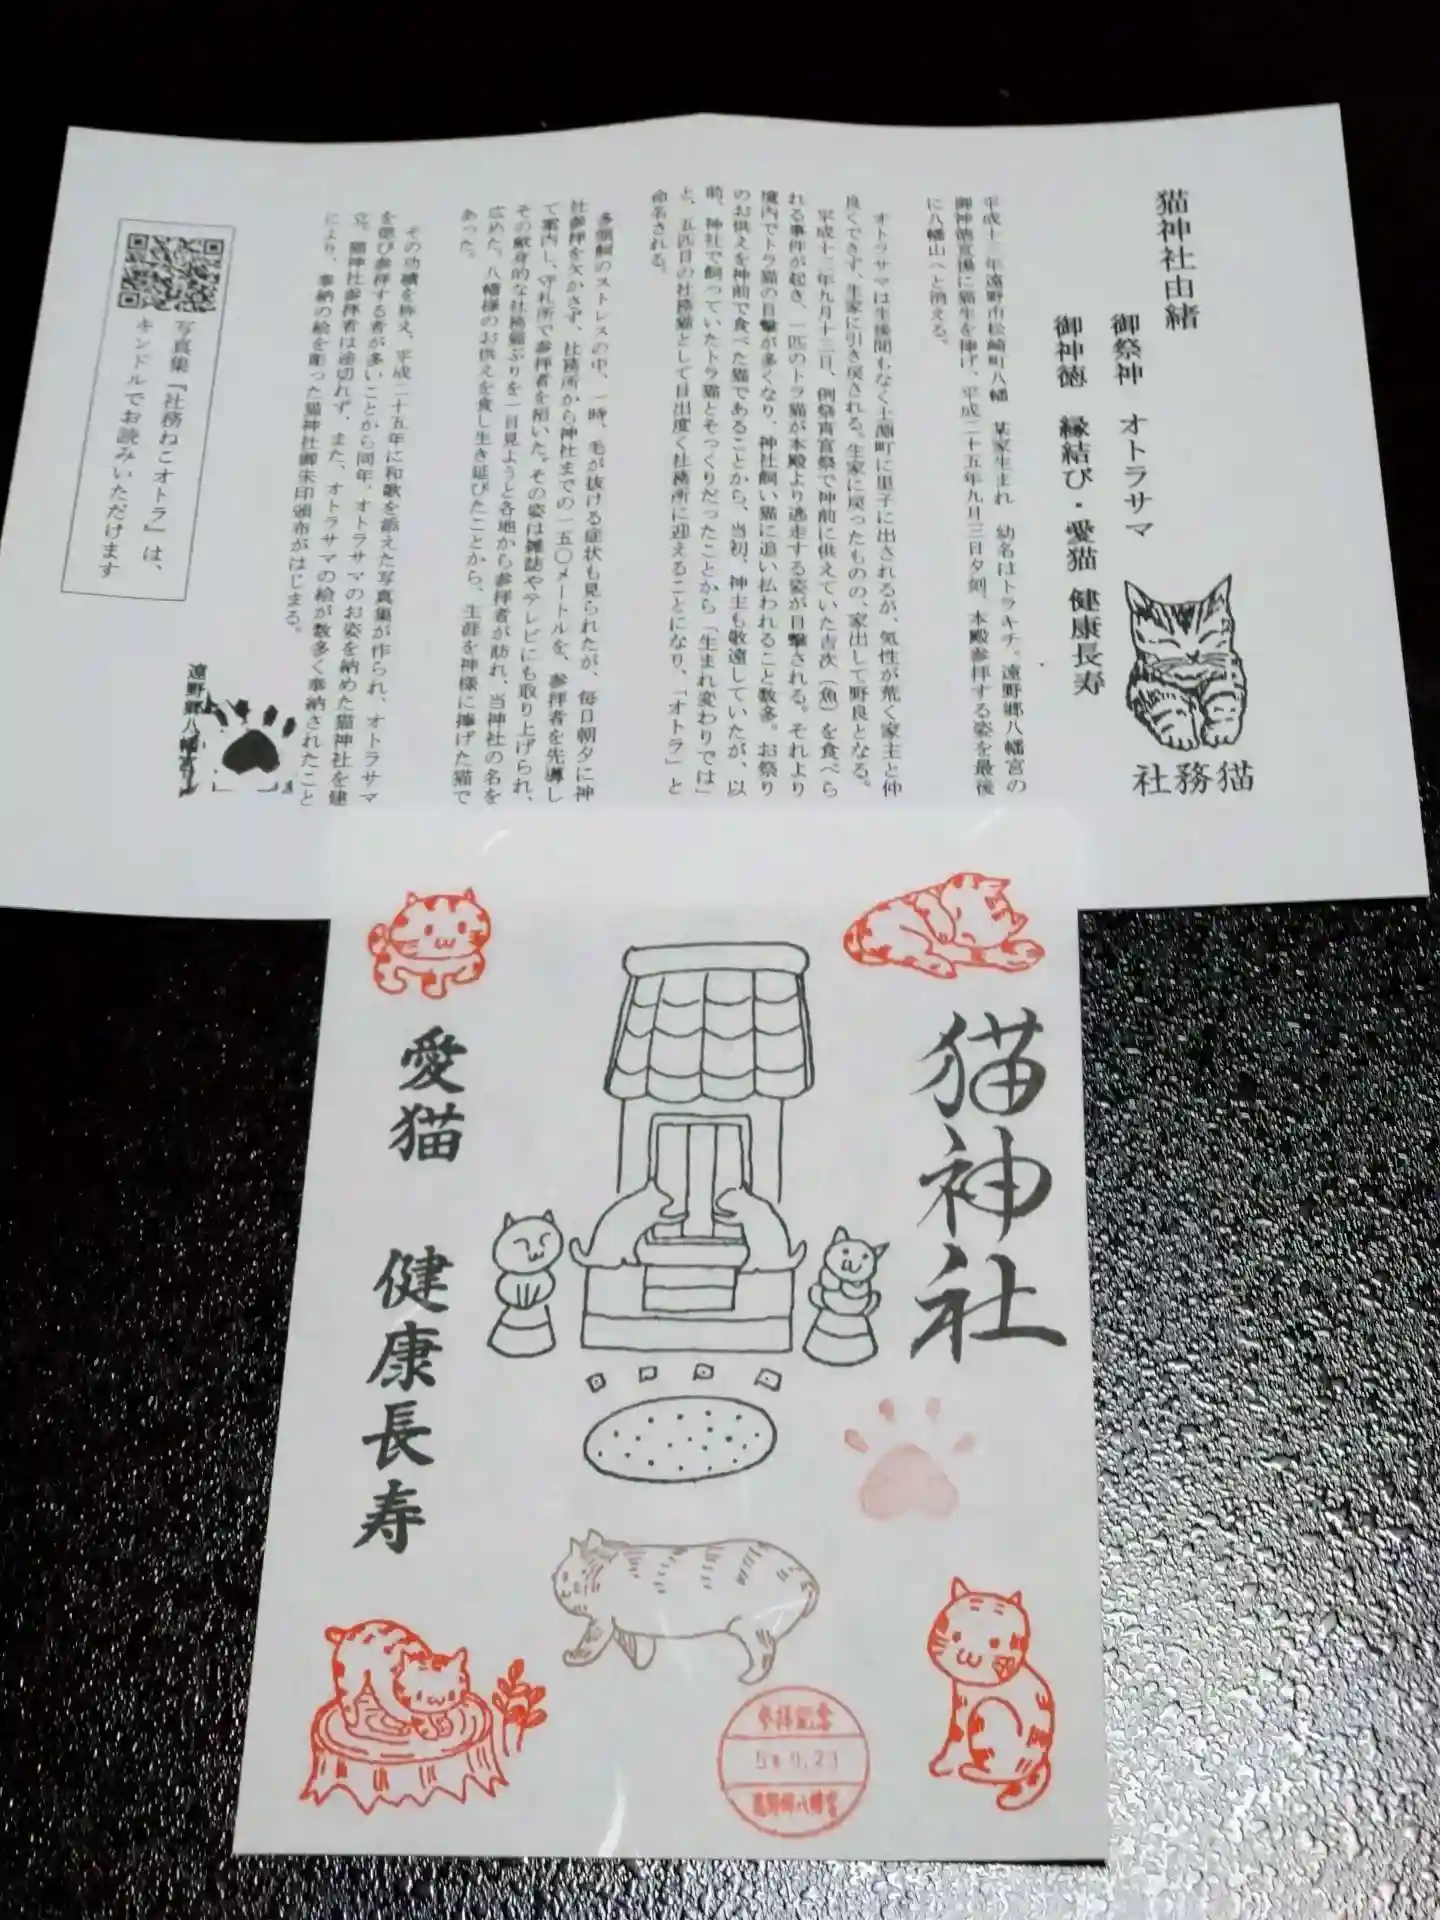 猫神社由緒
御祭神　オトラサマ
御神徳　縁結び・愛猫 健康長寿
社務猫
平成十二年遠野市松崎町八幡　某家生まれ　幼名はトラキチ。遠野郷八幡宮の
御神徳宣揚に猫生を捧げ、平成二十五年九月三日夕刻、本殿参拝する姿を最後
に八幡山へと消える。
オトラサマは生後間もなく土淵町に里子に出されるが、気性が荒く家主と仲
良くできず、生家に引き戻される。生家に戻ったものの、家出して野良となる。
平成十二年九月十三日、例祭宵宮祭で神前に供えていた吉次（魚）を食べら
れる事件が起き、一匹のトラ猫が本殿より逃走する姿が目撃される。それより
境内でトラ猫の目撃が多くなり、神社飼い猫に追い払われること数多。お祭り
のお供えを神前で食べた猫であることから、当初、神主も敬遠していたが、以
前、神社で飼っていたトラ猫とそっくりだったことから「生まれ変わりでは」
と、五匹目の社務猫として目出度く社務所に迎えることになり、「オトラ」と
命名される。
多頭飼のストレスの中、一時、毛が抜ける症状も見られたが、毎日朝夕に神
社参拝を欠かさず、社務所から神社までの一五〇メートルを、参拝者を先導し
て案内し、守札所で参拝者を招いた。その姿は雑誌やテレビにも取り上げられ、
その献身的な社務猫ぶりを一目見ようと各地から参拝者が訪れ、当神社の名を
広めた。八幡様のお供えを食し生き延びたことから、生涯を神様に捧げた猫で
あった。
その功績を称え、平成二十五年に和歌を添えた写真集が作られ、オトラサマ
を偲び参拝する者が多いことから同年、オトラサマのお姿を納めた猫神社を建
立。猫神社参拝者は途切れず、また、オトラサマの絵が数多く奉納されたこと
により、奉納の絵を彫った猫神社御朱印頒布がはじまる。
遠野郷八幡宮
写真集『社務ねこオトラ』は、
キンドルでお読みいただけます
猫神社
愛猫　健康長寿
参拝記念
遠野郷八幡宮